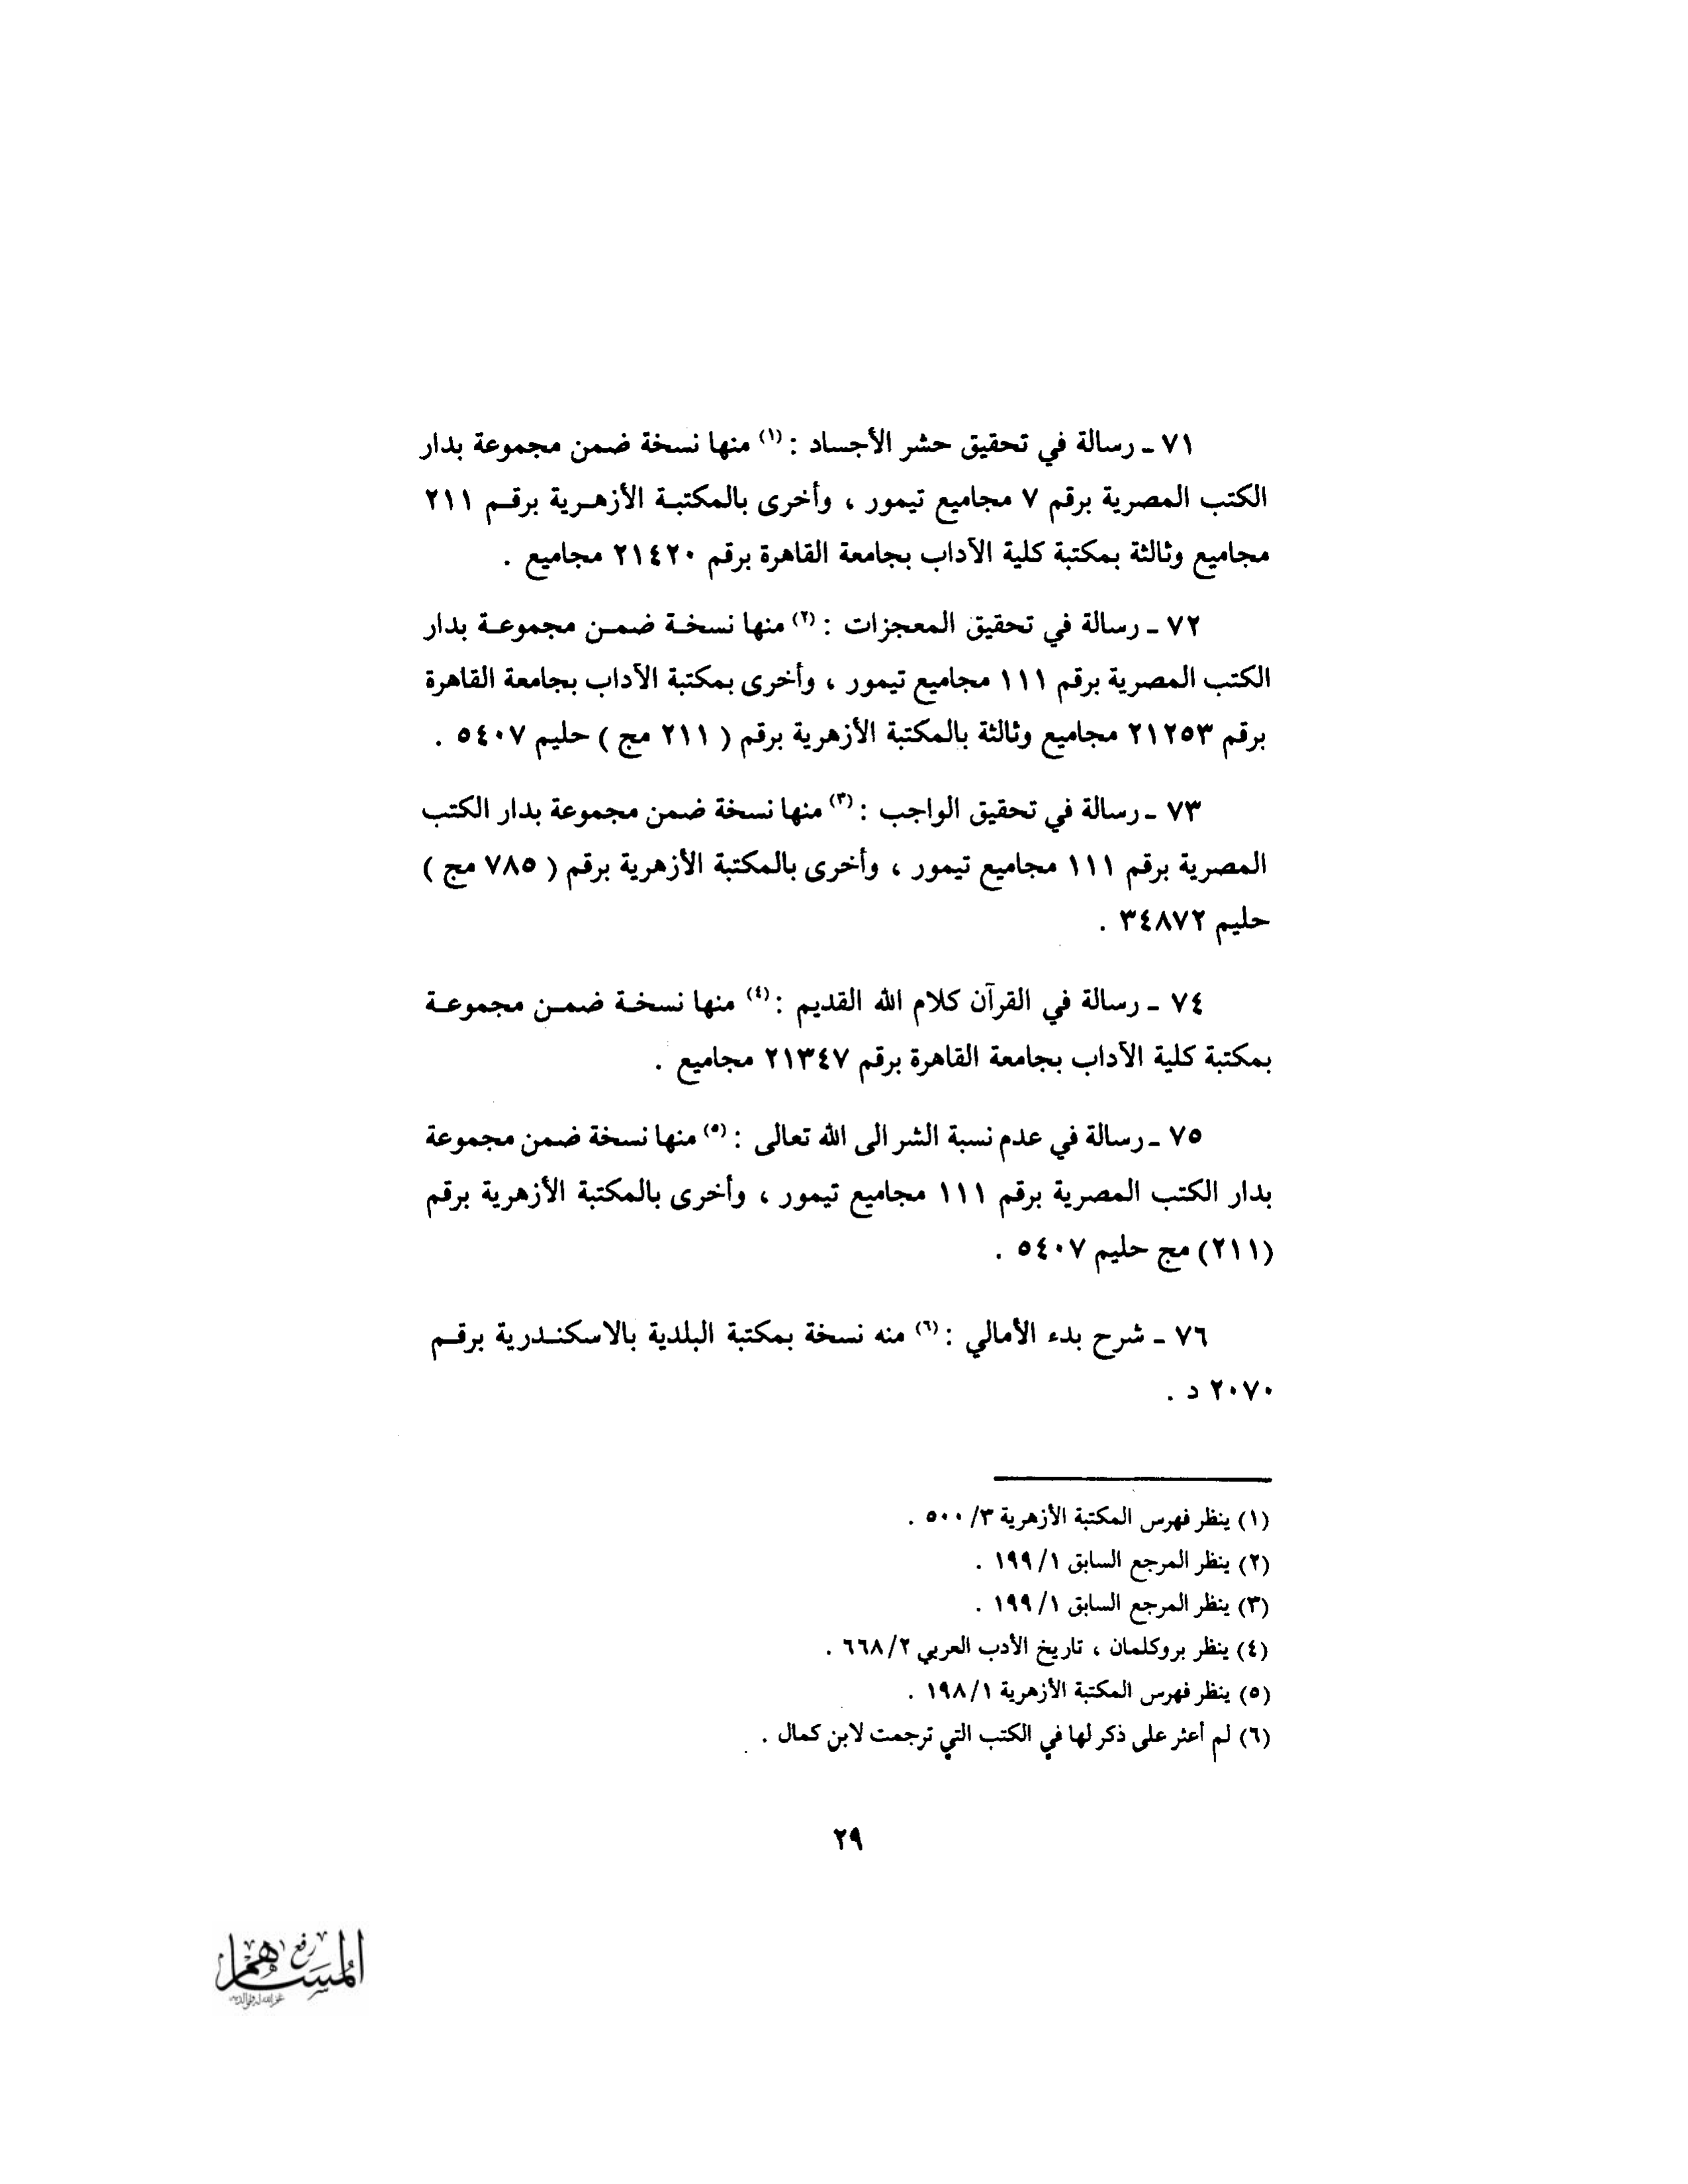 ٧١ ـ رسالة في تحقيق حشر الأجساد : (١) منها نسخة ضمن مجموعة بدار
الكتب المصرية برقم ٧ مجاميع تيمور ، وأخرى بالمكتبة الأزهرية برقم ٢١١
مجاميع وثالثة بمكتبة كلية الآداب بجامعة القاهرة برقم ٢١٤٢٠ مجاميع .
٧٢ ـ رسالة في تحقيق المعجزات : (٢) منها نسخة ضمن مجموعة بدار
الكتب المصرية برقم ١١١ مجاميع تيمور ، وأخرى بمكتبة الآداب بجامعة القاهرة
برقم ٢١٢٥٣ مجاميع وثالثة بالمكتبة الأزهرية برقم ( ٢١١ مج ) حليم ٥٤٠٧ .
٧٣ ـ رسالة في تحقيق الواجب : (٣) منها نسخة ضمن مجموعة بدار الكتب
المصرية برقم ١١١ مجاميع تيمور ، وأخرى بالمكتبة الأزهرية برقم ( ٧٨٥ مج )
حليم ٣٤٨٧٢ .
٧٤ ـ رسالة في القرآن كلام الله القديم : (٤) منها نسخة ضمن مجموعة
بمكتبة كلية الآداب بجامعة القاهرة برقم ٢١٣٤٧ مجاميع .
٧٥ ـ رسالة في عدم نسبة الشر الى الله تعالى : (٥) منها نسخة ضمن مجموعة
بدار الكتب المصرية برقم ١١١ مجاميع تيمور ، وأخرى بالمكتبة الأزهرية برقم
(٢١١) مج حليم ٥٤٠٧ .
٧٦ ـ شرح بدء الأمالي : (٦) منه نسخة بمكتبة البلدية بالاسكندرية برقم
٢٠٧٠ د .
(١) ينظر فهرس المكتبة الأزهرية ٣/ ٥٠٠ .
(٢) ينظر المرجع السابق ١/ ١٩٩ .
(٣) ينظر المرجع السابق ١/ ١٩٩ .
(٤) ينظر بروكلمان ، تاريخ الأدب العربي ٢/ ٦٦٨ .
(٥) ينظر فهرس المكتبة الأزهرية ١/ ١٩٨ .
(٦) لم أعثر على ذكر لها في الكتب التي ترجمت لابن كمال .
٢٩
رفع
المساهم